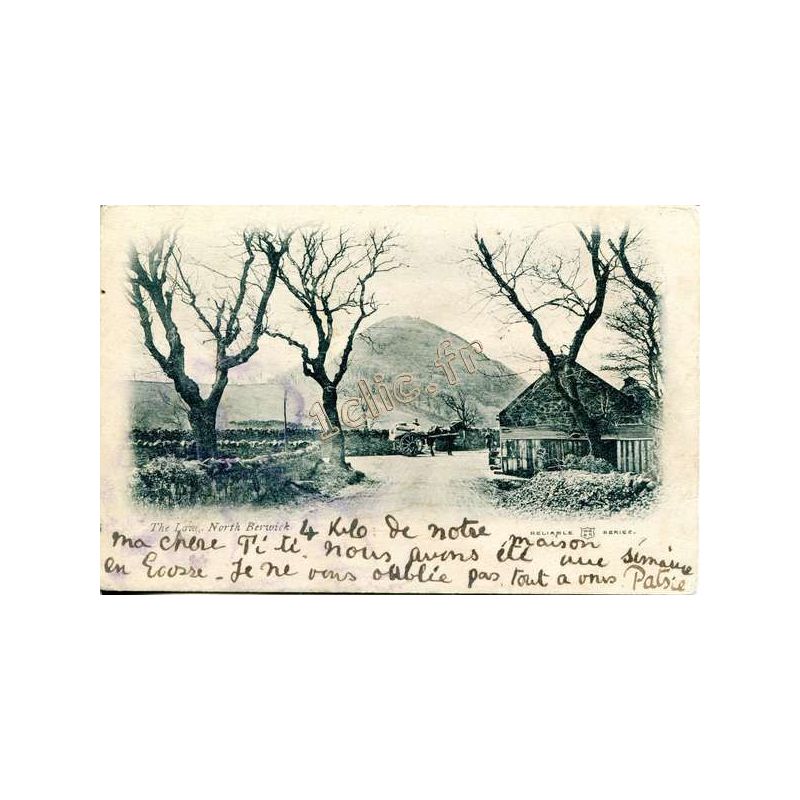 1clic.fr
The Law, North Berwick 4 Kilo de notre maison
RELIABLE SERIES.
ma chère Ti ti. Nous avons été une sémaine
en Ecosse - Je ne vous oublie pas. tout a vous Patsie